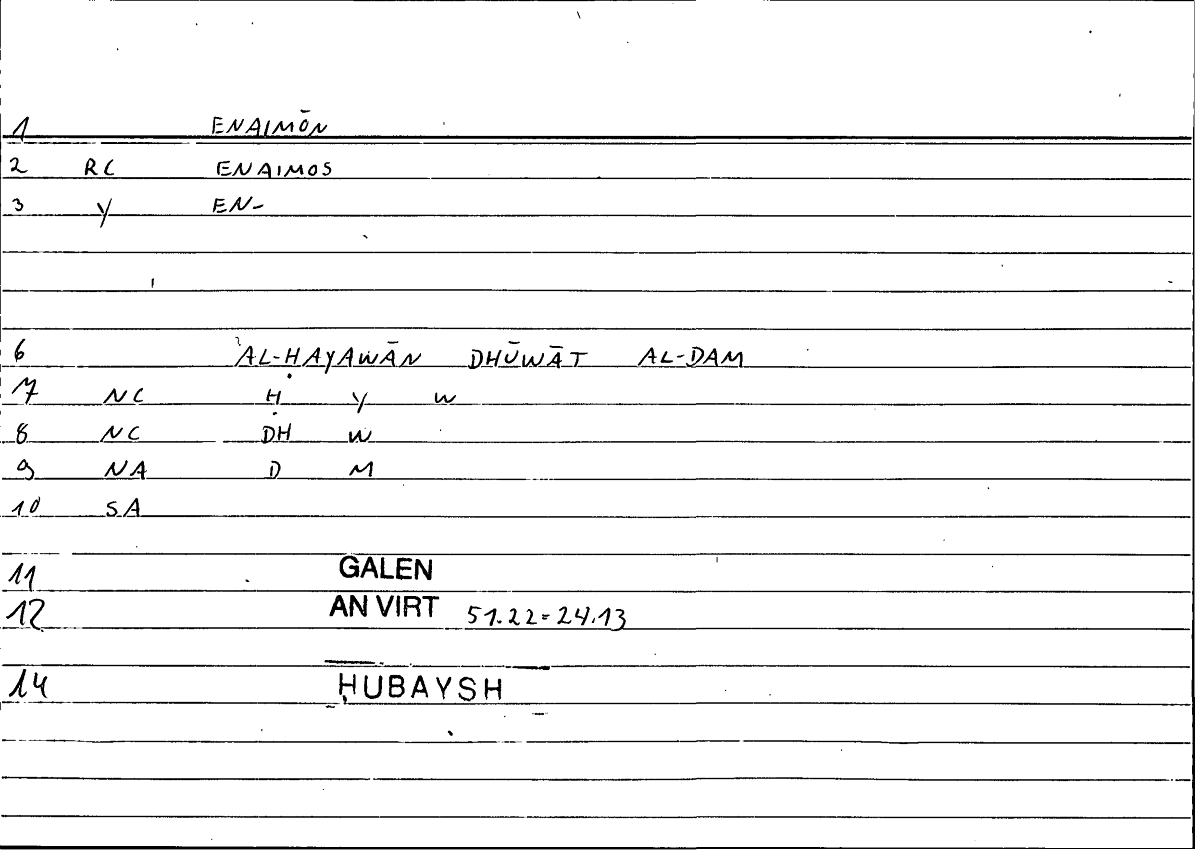 1 ENAIMŌN
2 RC ENAIMOS
3 Y EN-
6 AL-ḤAYAWĀN DHŪWĀT AL-DAM
7 NC Ḥ Y W
8 NC DH W
9 NA D M
10 SA
11 GALEN
12 AN VIRT 51.22=24.13
14 ḤUBAYSH